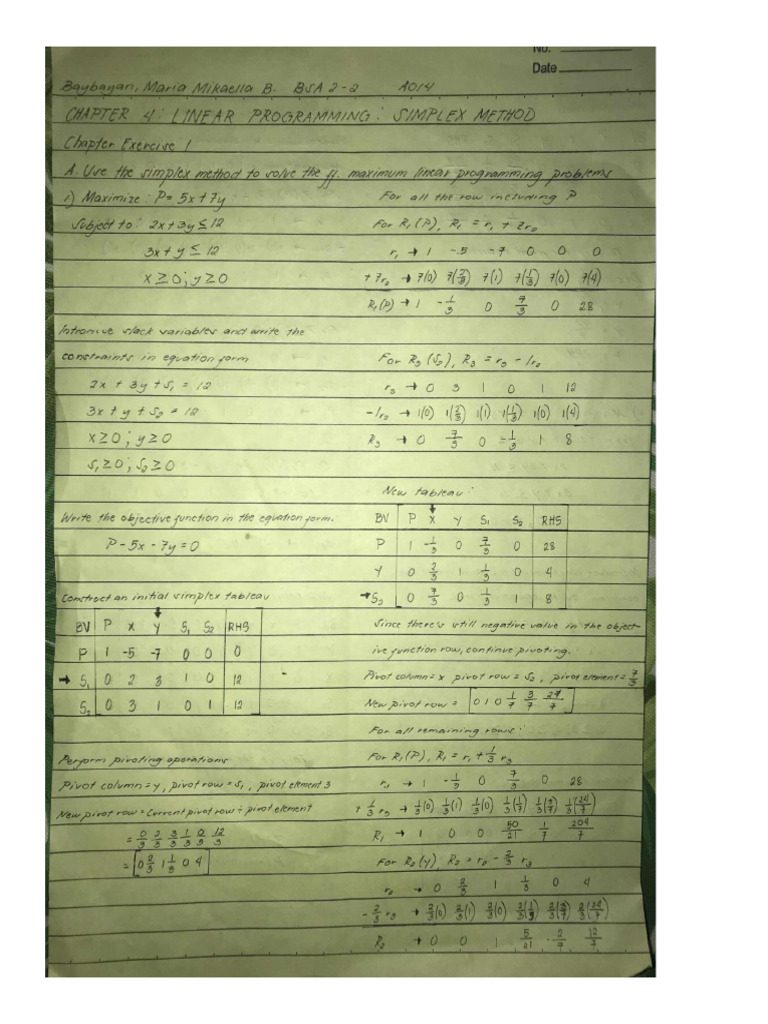 No.
Date
Baybayan, Maria Mikaella B. BSA 2-2 A014
CHAPTER 4: LINEAR PROGRAMMING: SIMPLEX METHOD
Chapter Exercise 1
A. Use the simplex method to solve the ff. maximum linear programming problems
1) Maximize: P= 5x+7y
Subject to: 2x+3y ≤ 12
3x+y ≤ 12
x ≥ 0; y ≥ 0
Introduce slack variables and write the
constraints in equation form
2x + 3y + S₁ = 12
3x + y + S₂ = 12
x ≥ 0; y ≥ 0
S₁ ≥ 0; S₂ ≥ 0
Write the objective function in the equation form.
P - 5x - 7y = 0
Construct an initial simplex tableau
BV P x y S₁ S₂ RHS
P 1 -5 -7 0 0 0
→ S₁ 0 2 3 1 0 12
S₂ 0 3 1 0 1 12
Perform pivoting operations
Pivot column = y, pivot row = S₁, pivot element 3
New pivot row = Current pivot row ÷ pivot element
= 0/3 2/3 3/3 1/3 0/3 12/3
= [0 2/3 1 1/3 0 4]
For all the row including P
For R₁(P), R₁ = r₁ + 7r₂
r₁ → 1 -5 -7 0 0 0
+ 7r₂ → 7(0) 7(2/3) 7(1) 7(1/3) 7(0) 7(4)
R₁(P) → 1 -1/3 0 7/3 0 28
For R₃ (S₂), R₃ = r₃ - 1r₂
r₃ → 0 3 1 0 1 12
-1r₂ → 1(0) 1(2/3) 1(1) 1(1/3) 1(0) 1(4)
R₃ → 0 7/3 0 -1/3 1 8
New tableau:
BV P x y S₁ S₂ RHS
P 1 -1/3 0 7/3 0 28
y 0 2/3 1 1/3 0 4
→ S₂ 0 7/3 0 1/3 1 8
Since there's still negative value in the object-
ive function row, continue pivoting.
Pivot column = x pivot row = S₂, pivot element = 7/3
New pivot row = [0 1 0 1/7 3/7 27/7]
For all remaining rows:
For R₁(P), R₁ = r₁ + 1/3 r₃
r₁ → 1 -1/3 0 7/3 0 28
+ 1/3 r₃ → 1/3(0) 1/3(1) 1/3(0) 1/3(1/7) 1/3(3/7) 1/3(24/7)
R₁ → 1 0 0 50/21 1/7 204/7
For R₂(y), R₂ = r₂ - 2/3 r₃
r₂ → 0 2/3 1 1/3 0 4
- 2/3 r₃ → 2/3(0) 2/3(1) 2/3(0) 2/3(1/7) 2/3(3/7) 2/3(24/7)
R₂ → 0 0 1 5/21 -2/7 12/7